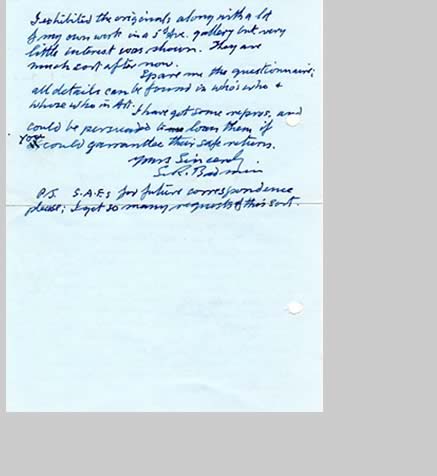 I exhibited the originals along with a lot
of my own work in a 5th Ave. gallery but very
little interest was shown. They are
much sort after now.
Spare me the questionnaire;
all details can be found in who's who &
whose who in Art.
I have got some repros, and
could be persuaded to loan them if
you could garrantee their safe return.
Yours Sincerely.
S.R. Badmin
P.S. S.A.E.s for future correspondence
please; I get so many requests of this sort.